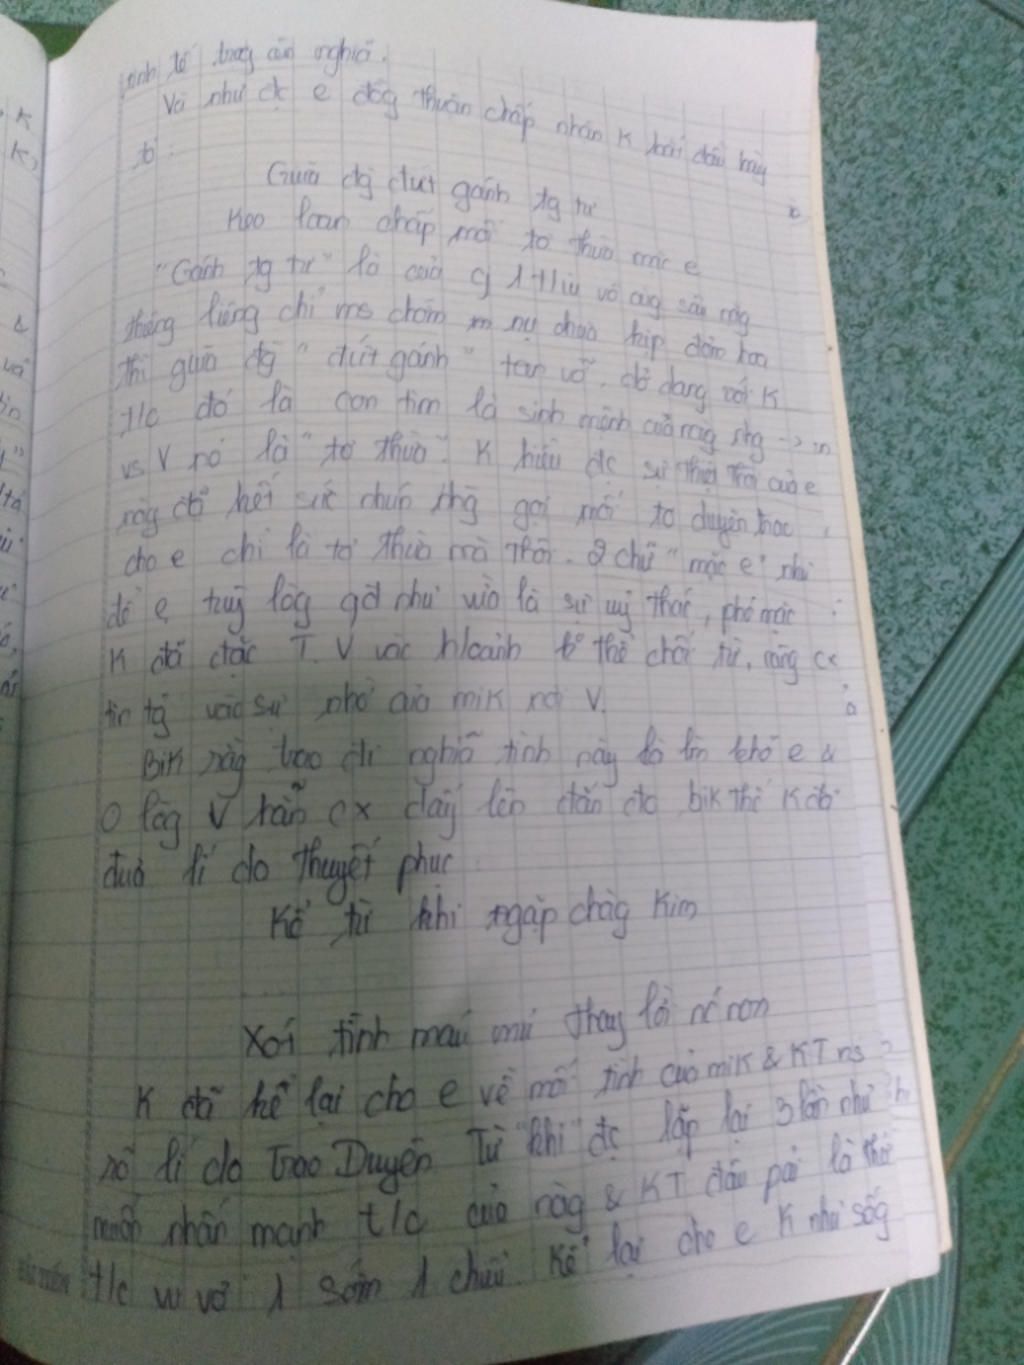 tình tế trong ân nghĩa.
Và như đc e đồg thuận chấp nhận K bắt đầu bày
tỏ:
Giữa đg đứt gánh tg tư
Keo loan chắp mối tơ thừa mặc e
"Gánh tg tư" là của g 1 tiu vô cùg sâu nặg
thiêng liêng chỉ ms chớm nụ chưa kịp đơm hoa
thì giữa đg "đứt gánh" tan vỡ, dở dang với K
t/c đó là con tim là sinh mệnh của nàg nhg →
vs V nó là "tơ thừa". K hiểu đc sự thiệt thòi của e
nàg đã hết sức nhún nhg gọi mối tơ duyên trao
cho e chỉ là tơ thừa mà thôi. 2 chữ "mặc e" như
để e tuỳ lòg gở như vừa là sự uỷ thác, phó mặc
K đã đặt T.V vào h/cảnh k thể chối từ, nàg cx
tin tg vào sự nhờ của mìk nơi V.
Bik nàg trao đi nghĩa tình này là làm khó e &
lòg V hẳn cx dấy lên đắn đo bik thế K đã
đưa lí do thuyết phục
Kể từ khi ngặp chàg Kim
Xót tình máu mủ thay lời nc non
K đã kể lại cho e về mối tình của mìk & KT
rõ lí do Trao Duyên. Từ "khi" đc lặp lại 3 lần như
muốn nhấn mạnh t/c của nàg & KT đâu pải là thứ
t/c vu vơ 1 sớm 1 chiều. Kể lại cho e K như sốg